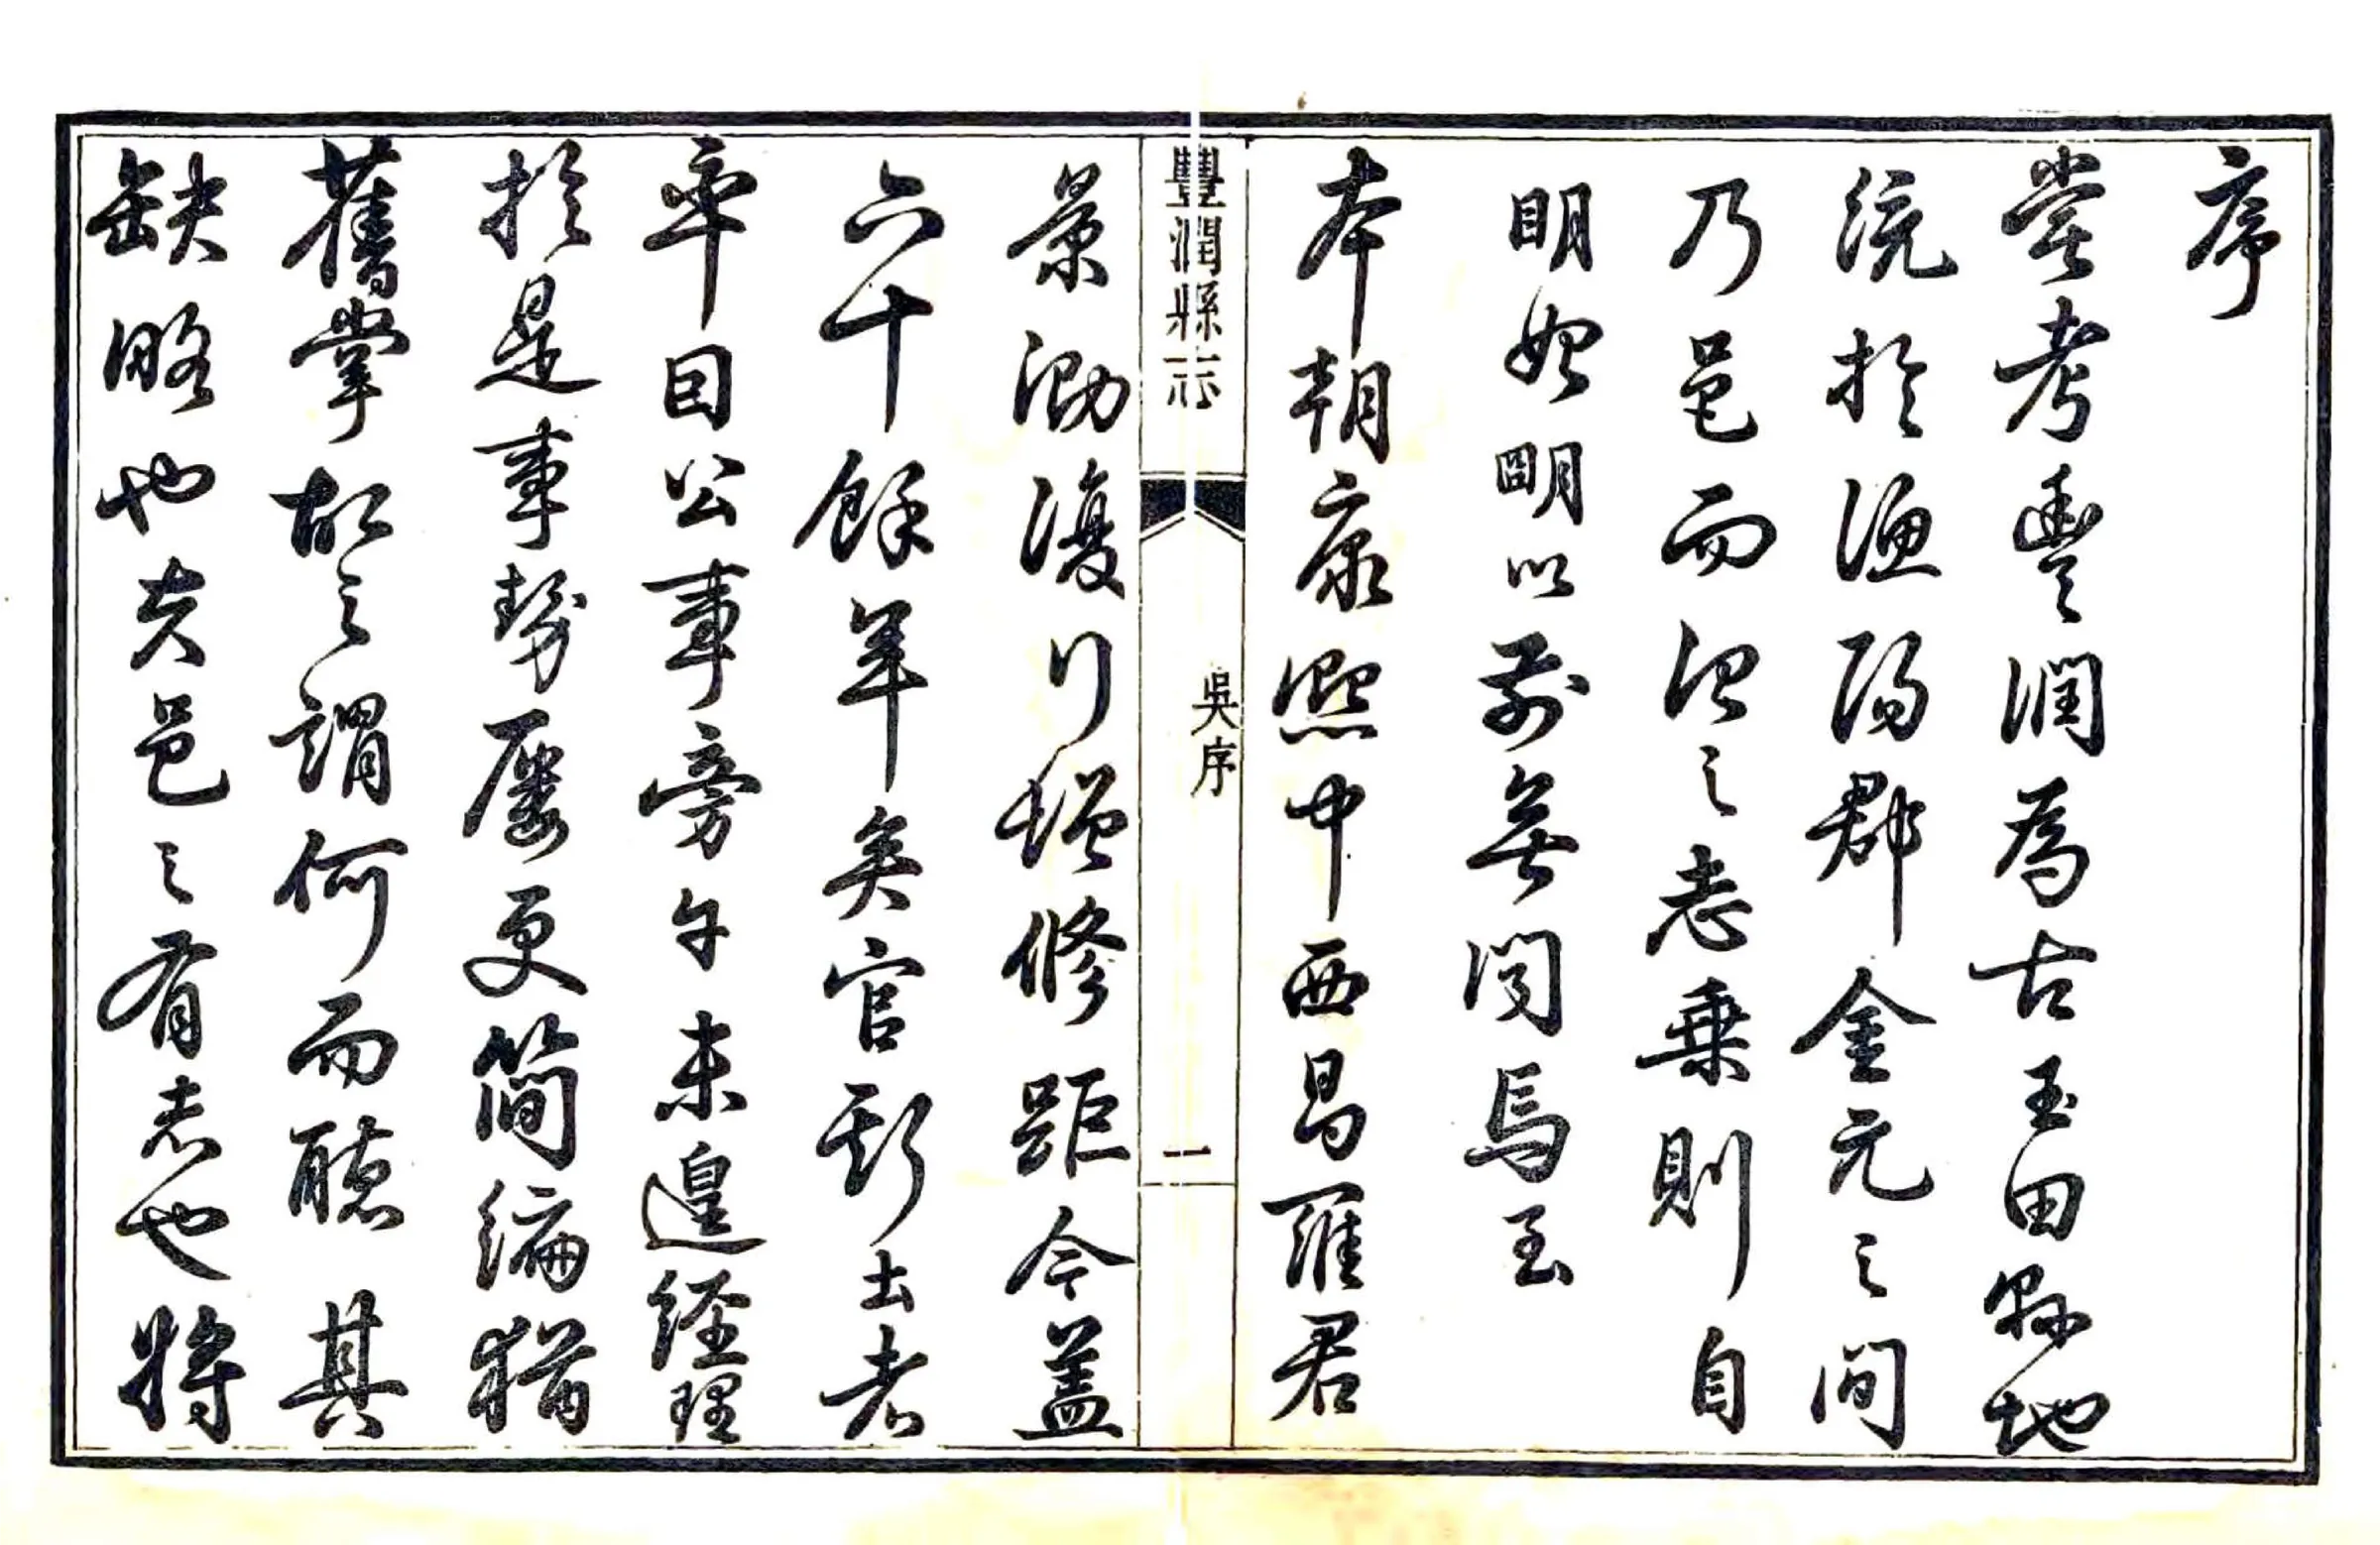 序
嘗考豐潤為古玉田縣地
統於漁陽郡金元之間
乃邑而治之志乗則自
明始明以前無聞焉至
本朝康熙中西昌羅君
豐潤縣志 吳序 一
景泐復行增修距今蓋
六十餘年矣官斯土者
率因公事旁午未遑經理
於是事勢屢更簡編猶
舊掌故之謂何而聽其
缺略也夫邑之有志也將